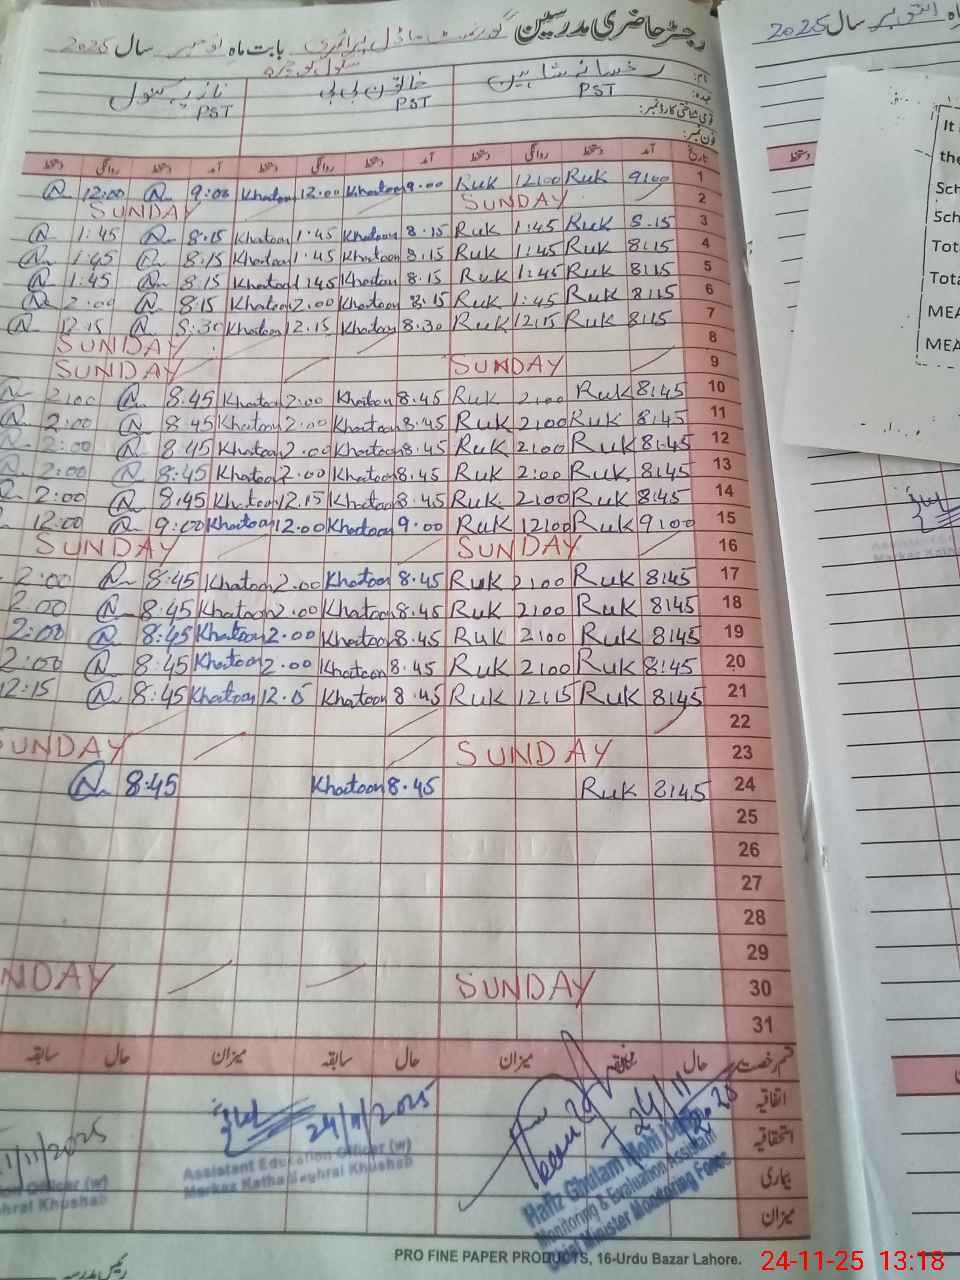 رجسٹر حاضری مدرسین گورنمنٹ ماڈل پرائمری بابت ماہ نومبر سال 2025
سکول
نام: رخسانہ شاہین خاتون بی بی نازیہ کنول
عہدہ: PST PST PST
قومی شناختی کارڈ نمبر:
فون نمبر:
تاریخ آمد دستخط روانگی دستخط آمد دستخط روانگی دستخط آمد دستخط روانگی دستخط
12:00 9:00 Khatoon 12.00 Khatoon 9.00 Ruk 12:00 Ruk 9:00 1
SUNDAY SUNDAY 2
1:45 8.15 Khatoon 1.45 Khatoon 8.15 Ruk 1:45 Ruk 8.15 3
1:45 8.15 Khatoon 1.45 Khatoon 8.15 Ruk 1:45 Ruk 8:15 4
1:45 8.15 Khatoon 1.45 Khatoon 8.15 Ruk 1:45 Ruk 8:15 5
2:00 8:15 Khatoon 2.00 Khatoon 8.15 Ruk 1:45 Ruk 8:15 6
12.15 8:30 Khatoon 12.15 Khatoon 8.30 Ruk 12:15 Ruk 8:15 7
SUNDAY 8
SUNDAY SUNDAY 9
2:00 8.45 Khatoon 2.00 Khatoon 8.45 Ruk 2:00 Ruk 8:45 10
2:00 8.45 Khatoon 2.00 Khatoon 8.45 Ruk 2:00 Ruk 8:45 11
2:00 8.45 Khatoon 2.00 Khatoon 8.45 Ruk 2:00 Ruk 8:45 12
2:00 8:45 Khatoon 2.00 Khatoon 8.45 Ruk 2:00 Ruk 8:45 13
2:00 8.45 Khatoon 12.15 Khatoon 8.45 Ruk 2:00 Ruk 8:45 14
12:00 9:00 Khatoon 12.00 Khatoon 9.00 Ruk 12:00 Ruk 9:00 15
SUNDAY SUNDAY 16
2:00 8.45 Khatoon 2.00 Khatoon 8.45 Ruk 2:00 Ruk 8:45 17
2:00 8.45 Khatoon 2.00 Khatoon 8.45 Ruk 2:00 Ruk 8:45 18
2:00 8.45 Khatoon 2.00 Khatoon 8.45 Ruk 2:00 Ruk 8:45 19
2:00 8:45 Khatoon 2.00 Khatoon 8.45 Ruk 2:00 Ruk 8:45 20
12:15 8:45 Khatoon 12.15 Khatoon 8.45 Ruk 12:15 Ruk 8:45 21
22
SUNDAY SUNDAY 23
8:45 Khatoon 8.45 Ruk 8:45 24
25
26
27
28
29
NDAY SUNDAY 30
31
قسم رخصت حال سابقہ میزان حال سابقہ میزان حال سابقہ
اتفاقیہ
استحقاقیہ
بیماری
میزان
24/11/2025
24/11/2025
11/2025
Assistant Education Officer (w)
Markaz Katha Saghral Khushab
Officer (w)
hral Khushab
Hafiz Ghulam Mohi
Monitoring & Evaluation Assistant
Chief Minister Monitoring Force
رئیس مدرسہ
PRO FINE PAPER PRODUCTS, 16-Urdu Bazar Lahore.
سال 2025
دستخط
It
the
Sch
Sch
Tot
Tota
MEA
MEA
24-11-25 13:18